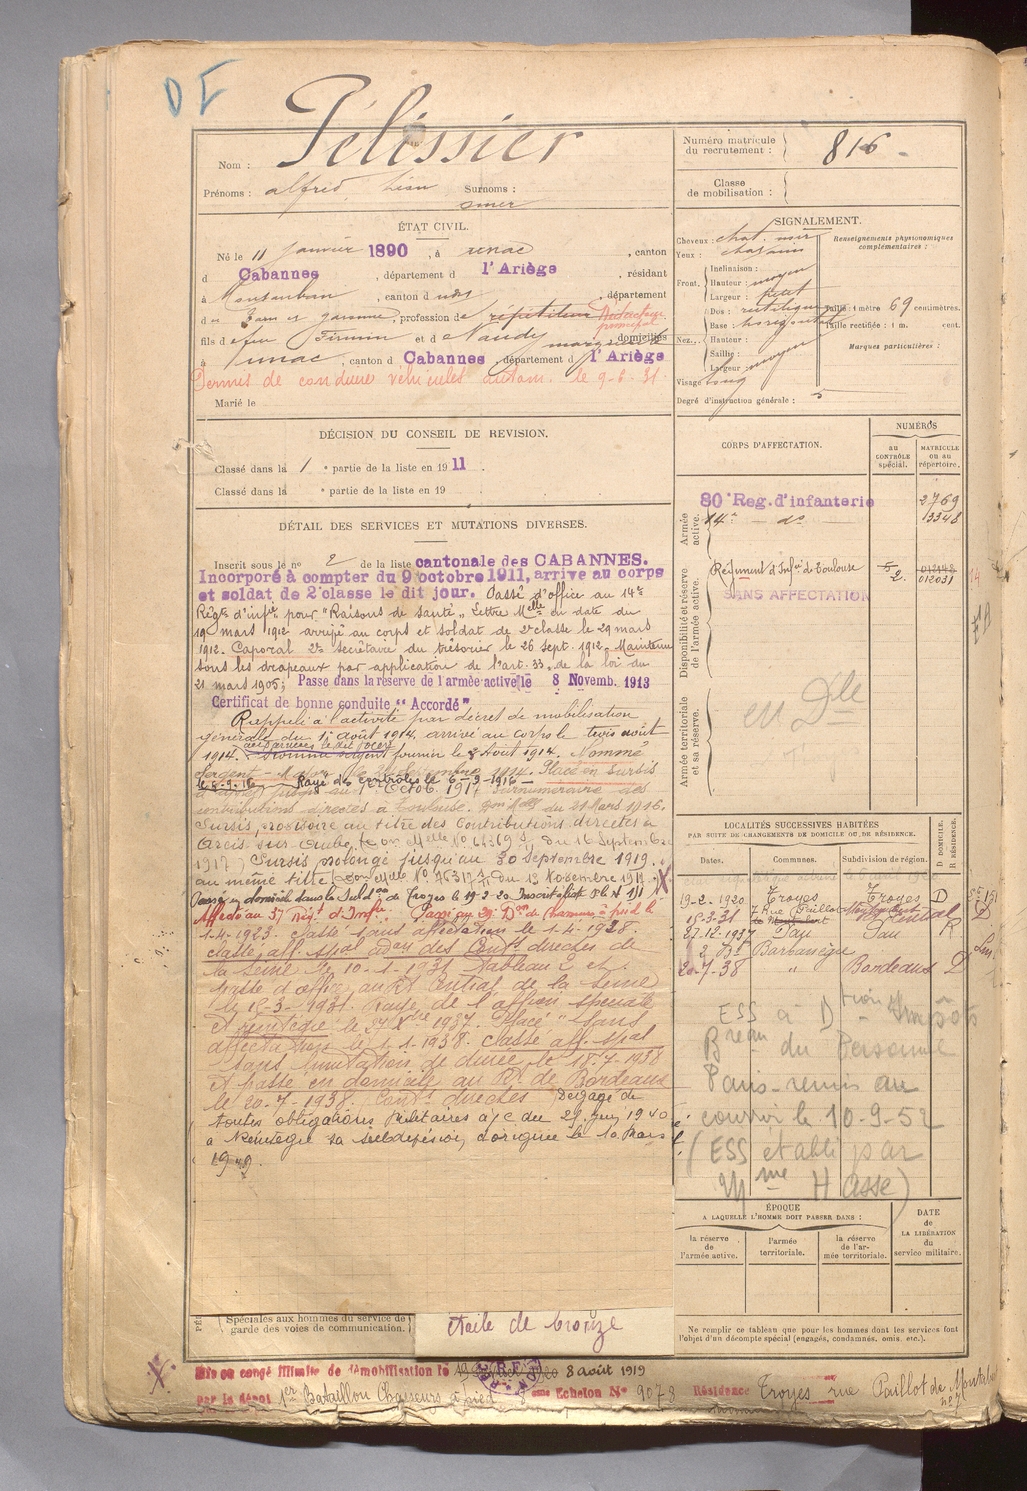 DF
Nom : Pélissier
Prénoms : alfred Léon Surnoms :
omer
Numéro matricule du recrutement : 816
Classe de mobilisation :
ÉTAT CIVIL.
Né le 11 janvier 1890, à unac, canton
d Cabannes, département d l'Ariège, résidant
à Montauban, canton d udt, département
du Tarn et garonne, profession de répétiteur Rédacteur
principal
fils de feu Firmin et de Naudy marguerite domiciliés
à unac, canton d Cabannes, département d l'Ariège
Permis de conduire véhicules autom. le 9-6-31.
Marié le
SIGNALEMENT.
Cheveux : chat. noir
Yeux : chatains
Front. Inclinaison : moyen
Hauteur : moyen
Largeur : petit
Nez. Dos : rectiligne
Base : horizontal
Hauteur :
Saillie :
Largeur : moyen
Visage long
Renseignements physionomiques complémentaires :
Taille : 1 mètre 69 centimètres.
Taille rectifiée : 1 m. cent.
Marques particulières :
Degré d'instruction générale : 5
DÉCISION DU CONSEIL DE REVISION.
Classé dans la 1e partie de la liste en 1911.
Classé dans la e partie de la liste en 19
DÉTAIL DES SERVICES ET MUTATIONS DIVERSES.
Inscrit sous le no 2 de la liste cantonale des CABANNES.
Incorporé à compter du 9 octobre 1911, arrive au corps
et soldat de 2e classe le dit jour. Passé d'office au 14e
Régt d'infie pour "Raisons de santé" Lettre Mlle en date du
19 mars 1912 arrivé au corps et soldat de 2e classe le 29 mars
1912. Caporal 2e secrétaire du trésorier le 26 sept. 1912. Maintenu
sous les drapeaux par application de l'art. 33 de la loi du
21 mars 1905; Passe dans la réserve de l'armée active le 8 Novemb. 1913
Certificat de bonne conduite "Accordé"
Rappelé à l'activité par décret de mobilisation
générale du 1er août 1914. arrivé au corps le trois août
1914. Nommé sergent fourrier le 8 Août 1914. Nommé
Sergent-Major 1914. Placé en sursis
le 6-9-16 Rayé des contrôles le 6-9-1916
Octob. 1917 Surnuméraire des
contributions directes à Toulouse. du 21 Mars 1916.
Sursis provisoire au titre des Contributions directes à
Arcis-sur-Aube, du 16 Septembre
1917) Sursis prolongé jusqu'au 30 septembre 1919.
au même titre du 13 Novembre 1919
Passé en domicile dans la Subdon de Troyes le 19-2-20
Affecté au 37 Régt d'Infie. Passé au 29e Bon de Chasseurs à pied le
1-4-1923. Classé sans affectation le 1-4-1928.
classé aff. spal adon des Conts directes de
la Seine le 10-1-1931 Tableau 2 et
passé d'office au Rt Central de la Seine
le 15-3-1931. Rayé de l'affion spéciale
et réintégré le 27 Xbre 1937. Placé "sans
affectation le 1-1-1938. Classé aff. spal
sans limitation de durée le 18-7-1938
et passé en domicile au Rt de Bordeaux
le 20-7-1938. (Conts directes) Dégagé de
toutes obligations militaires à/c du
a Réintégré sa subdivision d'origine le 10 Mars
1949.
CORPS D'AFFECTATION.
NUMÉROS
au CONTRÔLE spécial.
MATRICULE ou au répertoire.
Armée active.
80e Reg. d'infanterie 2769
14e — do — 13348
Disponibilité et réserve de l'armée active.
Régiment d'Infie de Toulouse
012031
SANS AFFECTATION
Armée territoriale et sa réserve.
en Dle
LOCALITÉS SUCCESSIVES HABITÉES
PAR SUITE DE CHANGEMENTS DE DOMICILE OU DE RÉSIDENCE.
Dates. Communes. Subdivision de région. D DOMICILE. R RÉSIDENCE.
19-2-1920 Troyes Troyes D
7 Rue Paillot
15-3-31 Central D
27-12-1937 Pau Pau R
2 Bd Barbanègre
20-7-38 " Bordeaux D
ESS à Dtion Impôts
Breau du Personnel
Paris - remis au
courrier le 10-9-52
(ESS établi par
Mme Hasse)
ÉPOQUE
A LAQUELLE L'HOMME DOIT PASSER DANS :
la réserve de l'armée active.
l'armée territoriale.
la réserve de l'armée territoriale.
DATE de LA LIBÉRATION du service militaire.
Spéciales aux hommes du service de garde des voies de communication.
étoile de bronze
Ne remplir ce tableau que pour les hommes dont les services font l'objet d'un décompte spécial (engagés, condamnés, omis, etc.).
Mis en congé illimité de démobilisation le 8 août 1919
par le dépôt 1er Bataillon Chasseurs à pied 8eme Echelon No 9073 Résidence Troyes rue Paillot de Montabert